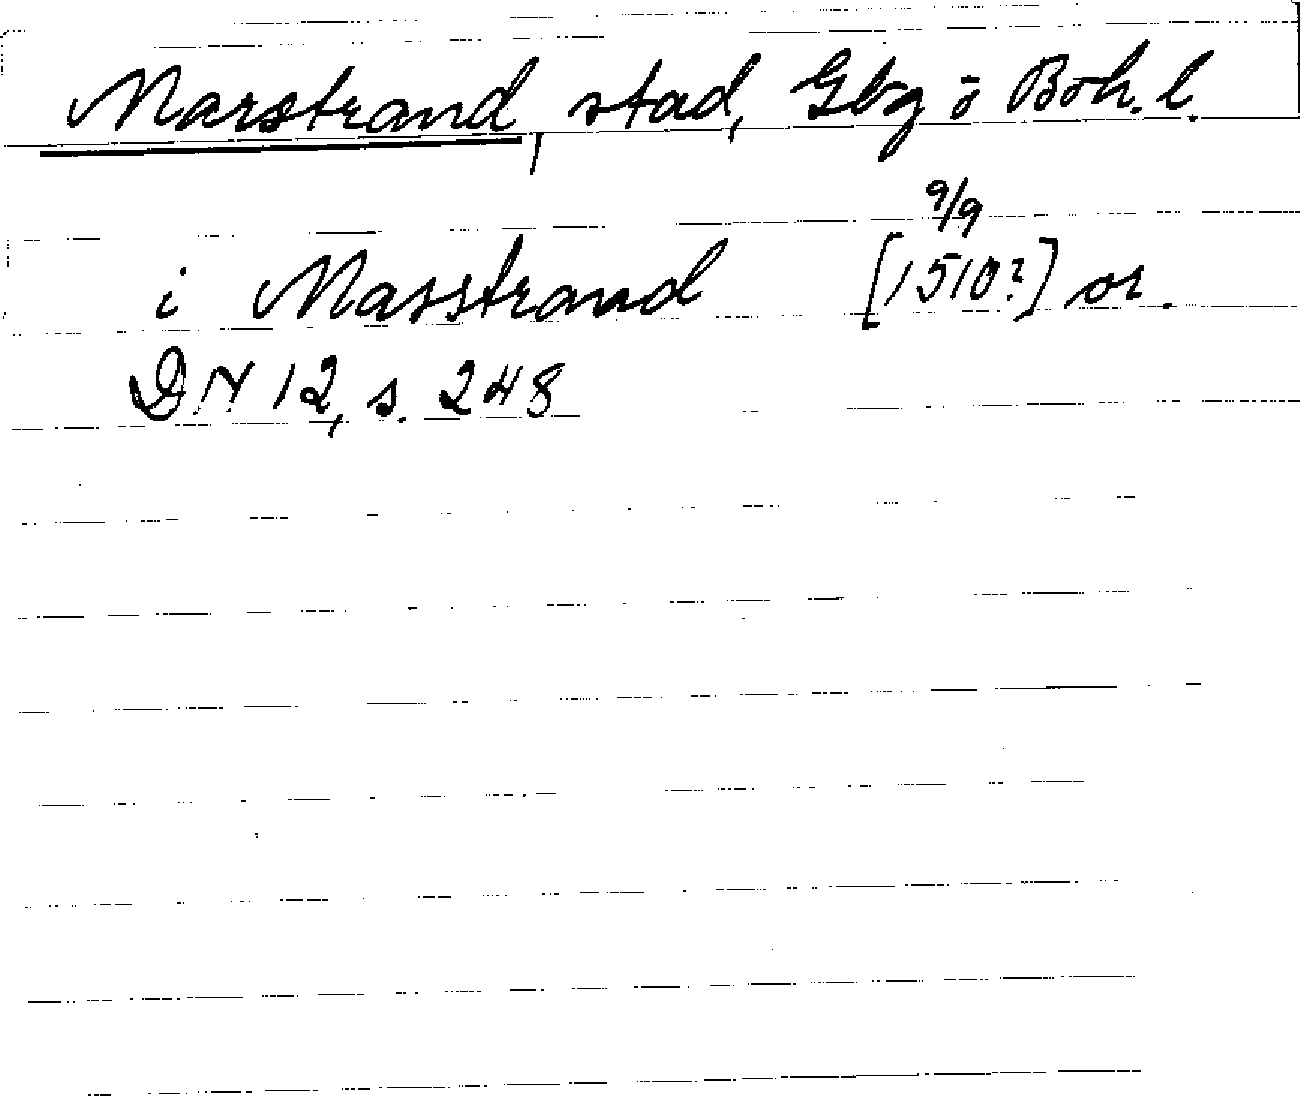 Marstrand, stad, Gbg o Boh. l.
i Masstrand [1510?] 9/9 or.
DN 12, s. 248